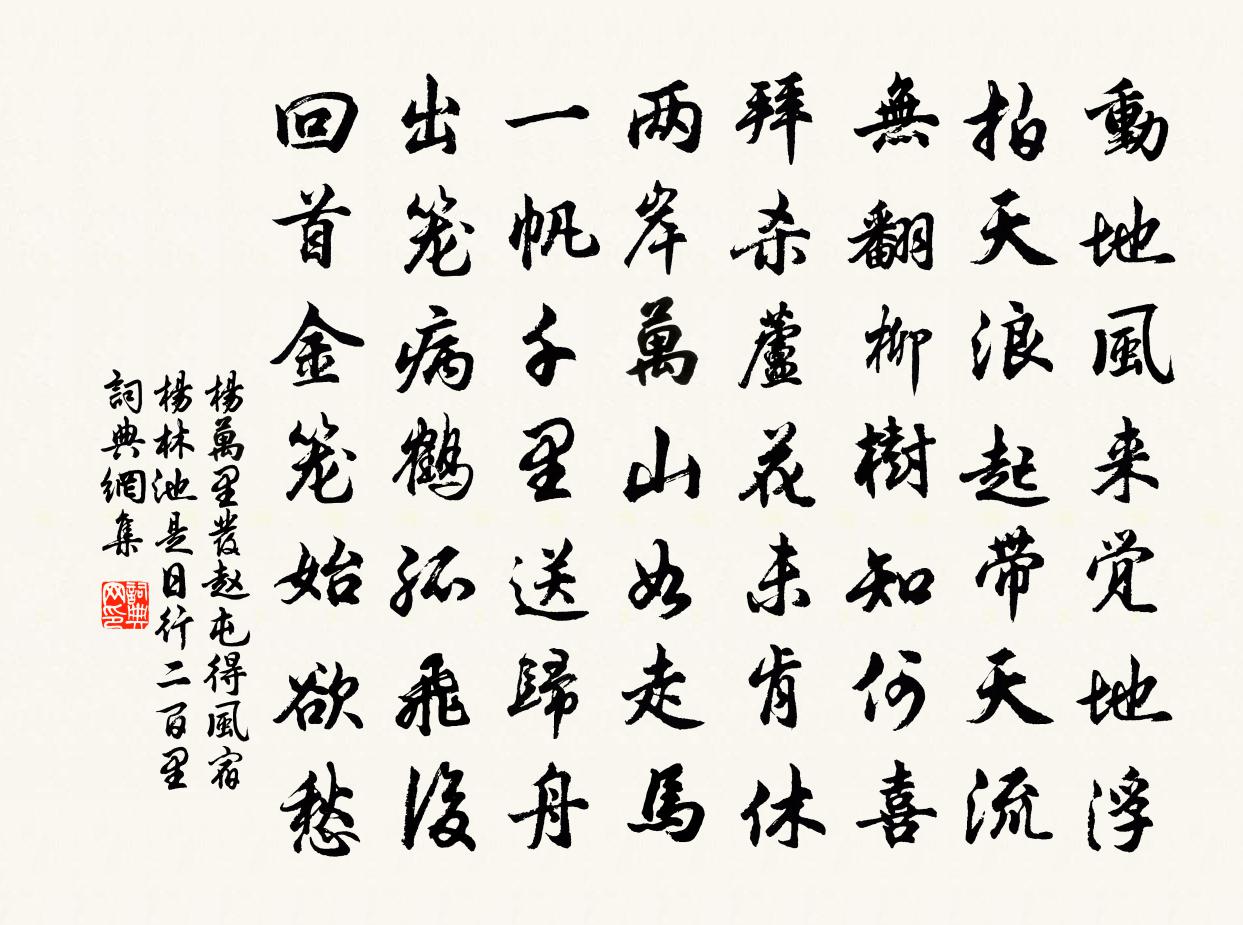 動地風来覺地浮
拍天浪起带天流
無翻柳樹知何喜
拜杀蘆花未肯休
两岸萬山如走馬
一帆千里送歸舟
出笼病鶴孤飛後
回首金笼始欲愁
楊萬里發赵屯得風宿
楊林池是日行二百里
詞典網集
詞典网印